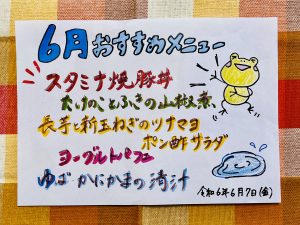 6月おすすめメニュー
スタミナ焼豚丼
たけのことふきの山椒煮、
長芋と新玉ねぎのツナマヨ
ポン酢サラダ
ヨーグルトパフェ
ゆば かにかまの清汁
令和6年6月7日(金)